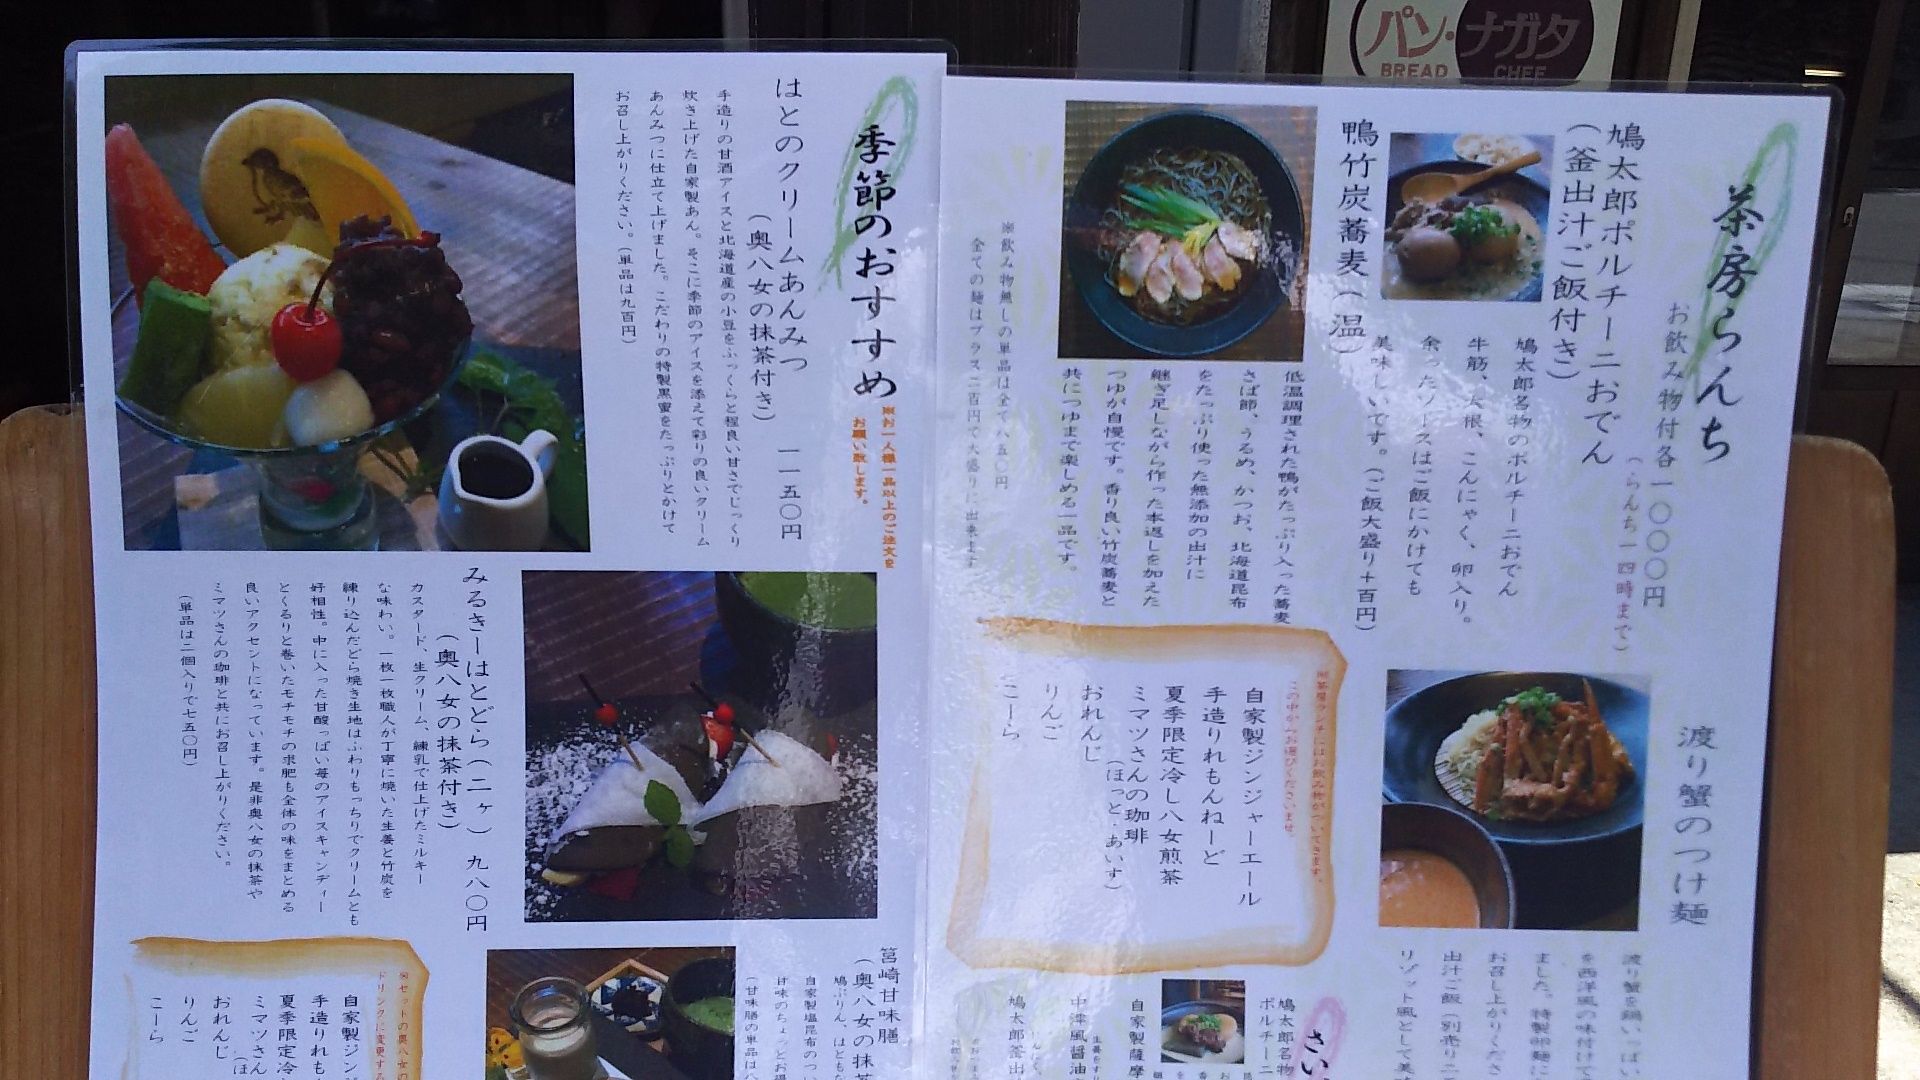 パン・ナガタ
BREAD
CHEF
茶房らんち
お飲み物付各一〇〇〇円
(らんち一四時まで)
鳩太郎ポルチーニおでん
(釜出汁ご飯付き)
鳩太郎名物のポルチーニおでん
牛筋、大根、こんにゃく、卵入り。
余ったソースはご飯にかけても
美味しいです。(ご飯大盛り+百円)
鴨竹炭蕎麦(温)
低温調理された鴨がたっぷり入った蕎麦
さば節、うるめ、かつお、北海道昆布
をたっぷり使った無添加の出汁に
継ぎ足しながら作った本返しを加えた
つゆが自慢です。香り良い竹炭蕎麦と
共につゆまで楽しめる一品です。
※飲み物無しの単品は全て八五〇円
全ての麺はプラス二百円で大盛りに出来ます
渡り蟹のつけ麺
渡り蟹を鍋いっぱい
を西洋風の味付けで
ました。特製卵麺に
お召し上がりくださ
出汁ご飯(別売り二
リゾット風として美味
※茶房ランチにはお飲み物がついてきます。
この中からお選びくださいませ。
自家製ジンジャーエール
手造りれもんねーど
夏季限定冷し八女煎茶
ミマツさんの珈琲
(ほっと・あいす)
おれんじ
りんご
こーら
さい
鳩太郎名物
ポルチーニ
自家製薩摩
中津風醤油
鳩太郎釜出
季節のおすすめ
※お一人様一品以上のご注文を
お願い致します。
はとのクリームあんみつ 一一五〇円
(奥八女の抹茶付き)
手造りの甘酒アイスと北海道産の小豆をふっくらと程良い甘さでじっくり
炊き上げた自家製あん。そこに季節のアイスを添えて彩りの良いクリーム
あんみつに仕立て上げました。こだわりの特製黒蜜をたっぷりとかけて
お召し上がりください。(単品は九百円)
みるきーはとどら(二ヶ) 九八〇円
(奥八女の抹茶付き)
カスタード、生クリーム、練乳で仕上げたミルキー
な味わい。一枚一枚職人が丁寧に焼いた生姜と竹炭を
練り込んだどら焼き生地はふわりもっちりでクリームとも
好相性。中に入った甘酸っぱい苺のアイスキャンディー
とくるりと巻いたモチモチの求肥も全体の味をまとめる
良いアクセントになっています。是非奥八女の抹茶や
ミマツさんの珈琲と共にお召し上がりください。
(単品は二個入りで七五〇円)
筥崎甘味膳
(奥八女の抹茶
鳩ぷりん、はともな
自家製塩昆布のつい
甘味のちょっとお得
(甘味膳の単品は八
※セットの奥八女の
ドリンクに変更する
自家製ジン
手造りれも
夏季限定冷
ミマツさん
(ほ
おれんじ
りんご
こーら